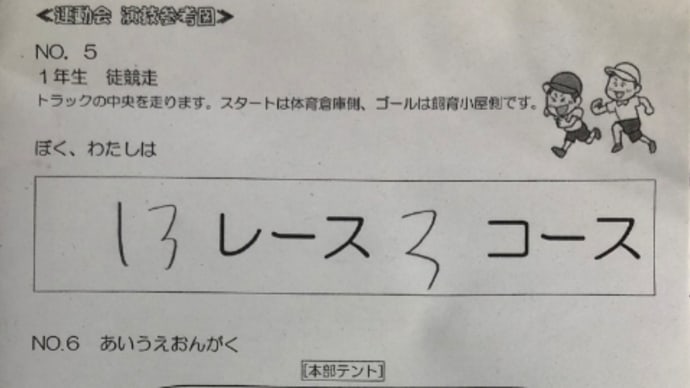 ≪運動会 演技参考図≫
NO. 5
1年生 徒競走
トラックの中央を走ります。スタートは体育倉庫側、ゴールは飼育小屋側です。
ぼく、わたしは
13 レース 3 コース
NO.6 あいうえおんがく
[本部テント]